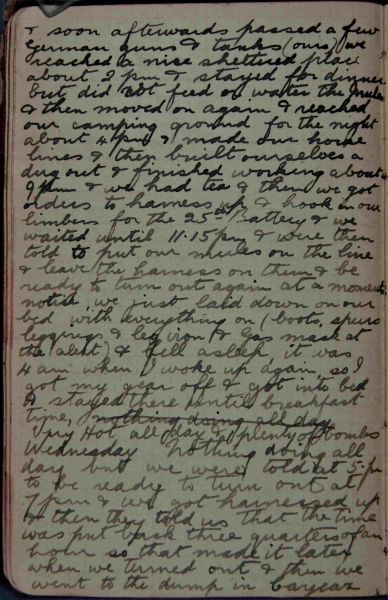 & soon afterwards passed a few
German guns & tanks (ours) we
reached a nise sheltered place
about 2 pm & stayed for dinner
but did not feed or water the mules
& then moved on again & reached
our camping ground for the night
about 4 pm & made our horse
lines & then built ourselves a
dug out & finished working about
9 pm & we had tea & then we got
orders to harness up & hook in our
limbers for the 25th Battery & we
waited until 11.15 pm & were then
told to put our mules on the line
& leave the harness on them & be
ready to turn out again at a moments
notice, we just laid down on our
bed with everything on (boots, spurs
leggings & leg iron & Gas mask at
the alert) & fell asleep, it was
4 am when I woke up again, so I
got my gear off & got into bed
& stayed there until breakfast
time, nothing doing all day
Very Hot all day & plenty of bombs
Wednesday Nothing doing all
day but we were told at 5 pm
to be ready to turn out at
7 pm & we got harnessed up
& then they told us that the time
was put back three quarters of an
hour so that made it later
when we turned out & then we
went to the dump in